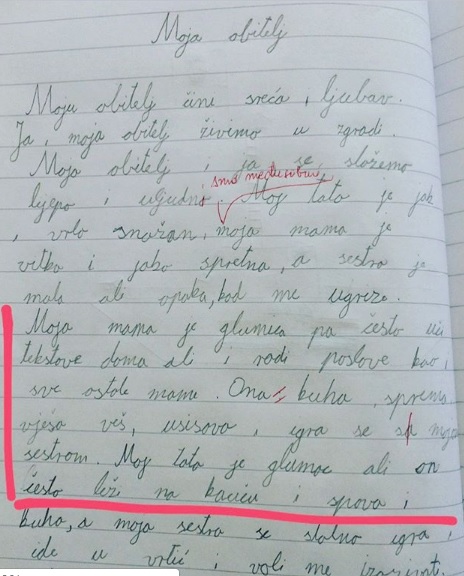 Moja obitelj
Moju obitelj čine sreća i ljubav.
Ja i moja obitelj živimo u zgradi.
Moja obitelj i ja se slažemo
smo međusobno
lijepo i uljudni. Moj tata je jak
i vrlo snažan, moja mama je
vitka i jako spretna, a sestra je
mala ali opaka, kad me ugrize.
Moja mama je glumica pa često uči
tekstove doma ali i radi poslove kao i
sve ostale mame. Ona kuha, sprema,
vješa veš, usisava, igra se sa moja
sestrom. Moj tata je glumac ali on
često leži na kauču i spava i
kuha, a moja sestra se stalno igra,
ide u vrtić i voli me izazivat.